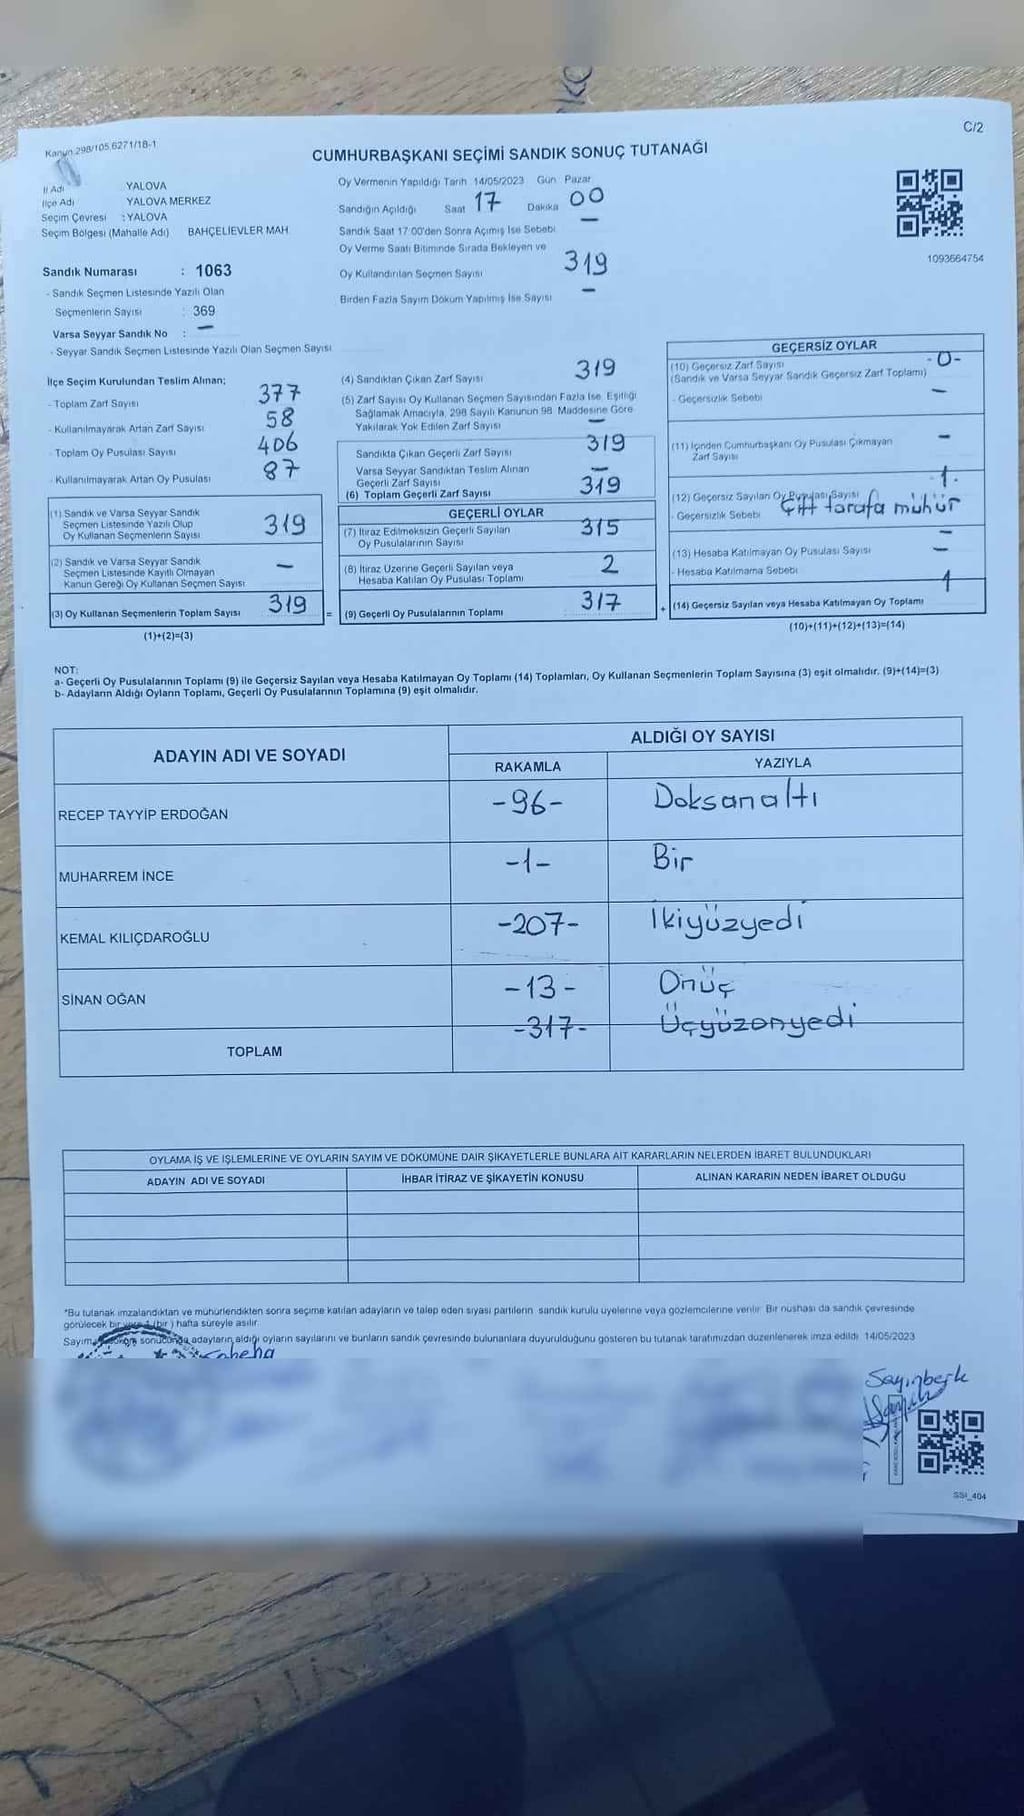 C/2
Kanun 298/105,6271/18-1
CUMHURBAŞKANI SEÇİMİ SANDIK SONUÇ TUTANAĞI
İl Adı YALOVA
İlçe Adı YALOVA MERKEZ
Seçim Çevresi : YALOVA
Seçim Bölgesi (Mahalle Adı) BAHÇELİEVLER MAH.
Sandık Numarası : 1063
- Sandık Seçmen Listesinde Yazılı Olan
Seçmenlerin Sayısı : 369
Varsa Seyyar Sandık No : —
- Seyyar Sandık Seçmen Listesinde Yazılı Olan Seçmen Sayısı
Oy Vermenin Yapıldığı Tarih 14/05/2023 Gün Pazar
Sandığın Açıldığı Saat 17 Dakika 00
Sandık Saat 17:00'den Sonra Açımış İse Sebebi —
Oy Verme Saati Bitiminde Sırada Bekleyen ve
Oy Kullandırılan Seçmen Sayısı 319
Birden Fazla Sayım Döküm Yapılmış İse Sayısı —
1093664754
İlçe Seçim Kurulundan Teslim Alınan;
- Toplam Zarf Sayısı 377
- Kullanılmayarak Artan Zarf Sayısı 58
- Toplam Oy Pusulası Sayısı 406
- Kullanılmayarak Artan Oy Pusulası 87
(1) Sandık ve Varsa Seyyar Sandık
Seçmen Listesinde Yazılı Olup
Oy Kullanan Seçmenlerin Sayısı 319
(2) Sandık ve Varsa Seyyar Sandık
Seçmen Listesinde Kayıtlı Olmayan
Kanun Gereği Oy Kullanan Seçmen Sayısı —
(3) Oy Kullanan Seçmenlerin Toplam Sayısı 319 =
(1)+(2)=(3)
(4) Sandıktan Çıkan Zarf Sayısı 319
(5) Zarf Sayısı Oy Kullanan Seçmen Sayısından Fazla İse, Eşitliği
Sağlamak Amacıyla, 298 Sayılı Kanunun 98. Maddesine Göre
Yakılarak Yok Edilen Zarf Sayısı —
Sandıkta Çıkan Geçerli Zarf Sayısı 319
Varsa Seyyar Sandıktan Teslim Alınan
Geçerli Zarf Sayısı —
(6) Toplam Geçerli Zarf Sayısı 319
GEÇERLİ OYLAR
(7) İtiraz Edilmeksizin Geçerli Sayılan
Oy Pusulalarının Sayısı 315
(8) İtiraz Üzerine Geçerli Sayılan veya
Hesaba Katılan Oy Pusulası Toplamı 2
(9) Geçerli Oy Pusulalarının Toplamı 317 +
GEÇERSİZ OYLAR
(10) Geçersiz Zarf Sayısı -0-
(Sandık ve Varsa Seyyar Sandık Geçersiz Zarf Toplamı)
- Geçersizlik Sebebi —
(11) İçinden Cumhurbaşkanı Oy Pusulası Çıkmayan
Zarf Sayısı —
(12) Geçersiz Sayılan Oy Pusulası Sayısı -1-
- Geçersizlik Sebebi Çift tarafa mühür
(13) Hesaba Katılmayan Oy Pusulası Sayısı —
- Hesaba Katılmama Sebebi —
(14) Geçersiz Sayılan veya Hesaba Katılmayan Oy Toplamı 1
(10)+(11)+(12)+(13)=(14)
NOT:
a- Geçerli Oy Pusulalarının Toplamı (9) ile Geçersiz Sayılan veya Hesaba Katılmayan Oy Toplamı (14) Toplamları, Oy Kullanan Seçmenlerin Toplam Sayısına (3) eşit olmalıdır. (9)+(14)=(3)
b- Adayların Aldığı Oyların Toplamı, Geçerli Oy Pusulalarının Toplamına (9) eşit olmalıdır.
ADAYIN ADI VE SOYADI ALDIĞI OY SAYISI
RAKAMLA YAZIYLA
RECEP TAYYİP ERDOĞAN -96- Doksanaltı
MUHARREM İNCE -1- Bir
KEMAL KILIÇDAROĞLU -207- İkiyüzyedi
SİNAN OĞAN -13- Onüç
TOPLAM -317- Üçyüzonyedi
OYLAMA İŞ VE İŞLEMLERİNE VE OYLARIN SAYIM VE DÖKÜMÜNE DAİR ŞİKAYETLERLE BUNLARA AİT KARARLARIN NELERDEN İBARET BULUNDUKLARI
ADAYIN ADI VE SOYADI İHBAR İTİRAZ VE ŞİKAYETİN KONUSU ALINAN KARARIN NEDEN İBARET OLDUĞU
*Bu tutanak imzalandıktan ve mühürlendikten sonra seçime katılan adayların ve talep eden siyasi partilerin sandık kurulu üyelerine veya gözlemcilerine verilir. Bir nüshası da sandık çevresinde
görülecek bir yere 1 (bir) hafta süreyle asılır.
Sayım döküm sonucunda adayların aldığı oyların sayılarını ve bunların sandık çevresinde bulunanlara duyurulduğunu gösteren bu tutanak tarafımızdan düzenlenerek imza edildi. 14/05/2023
SSI_404